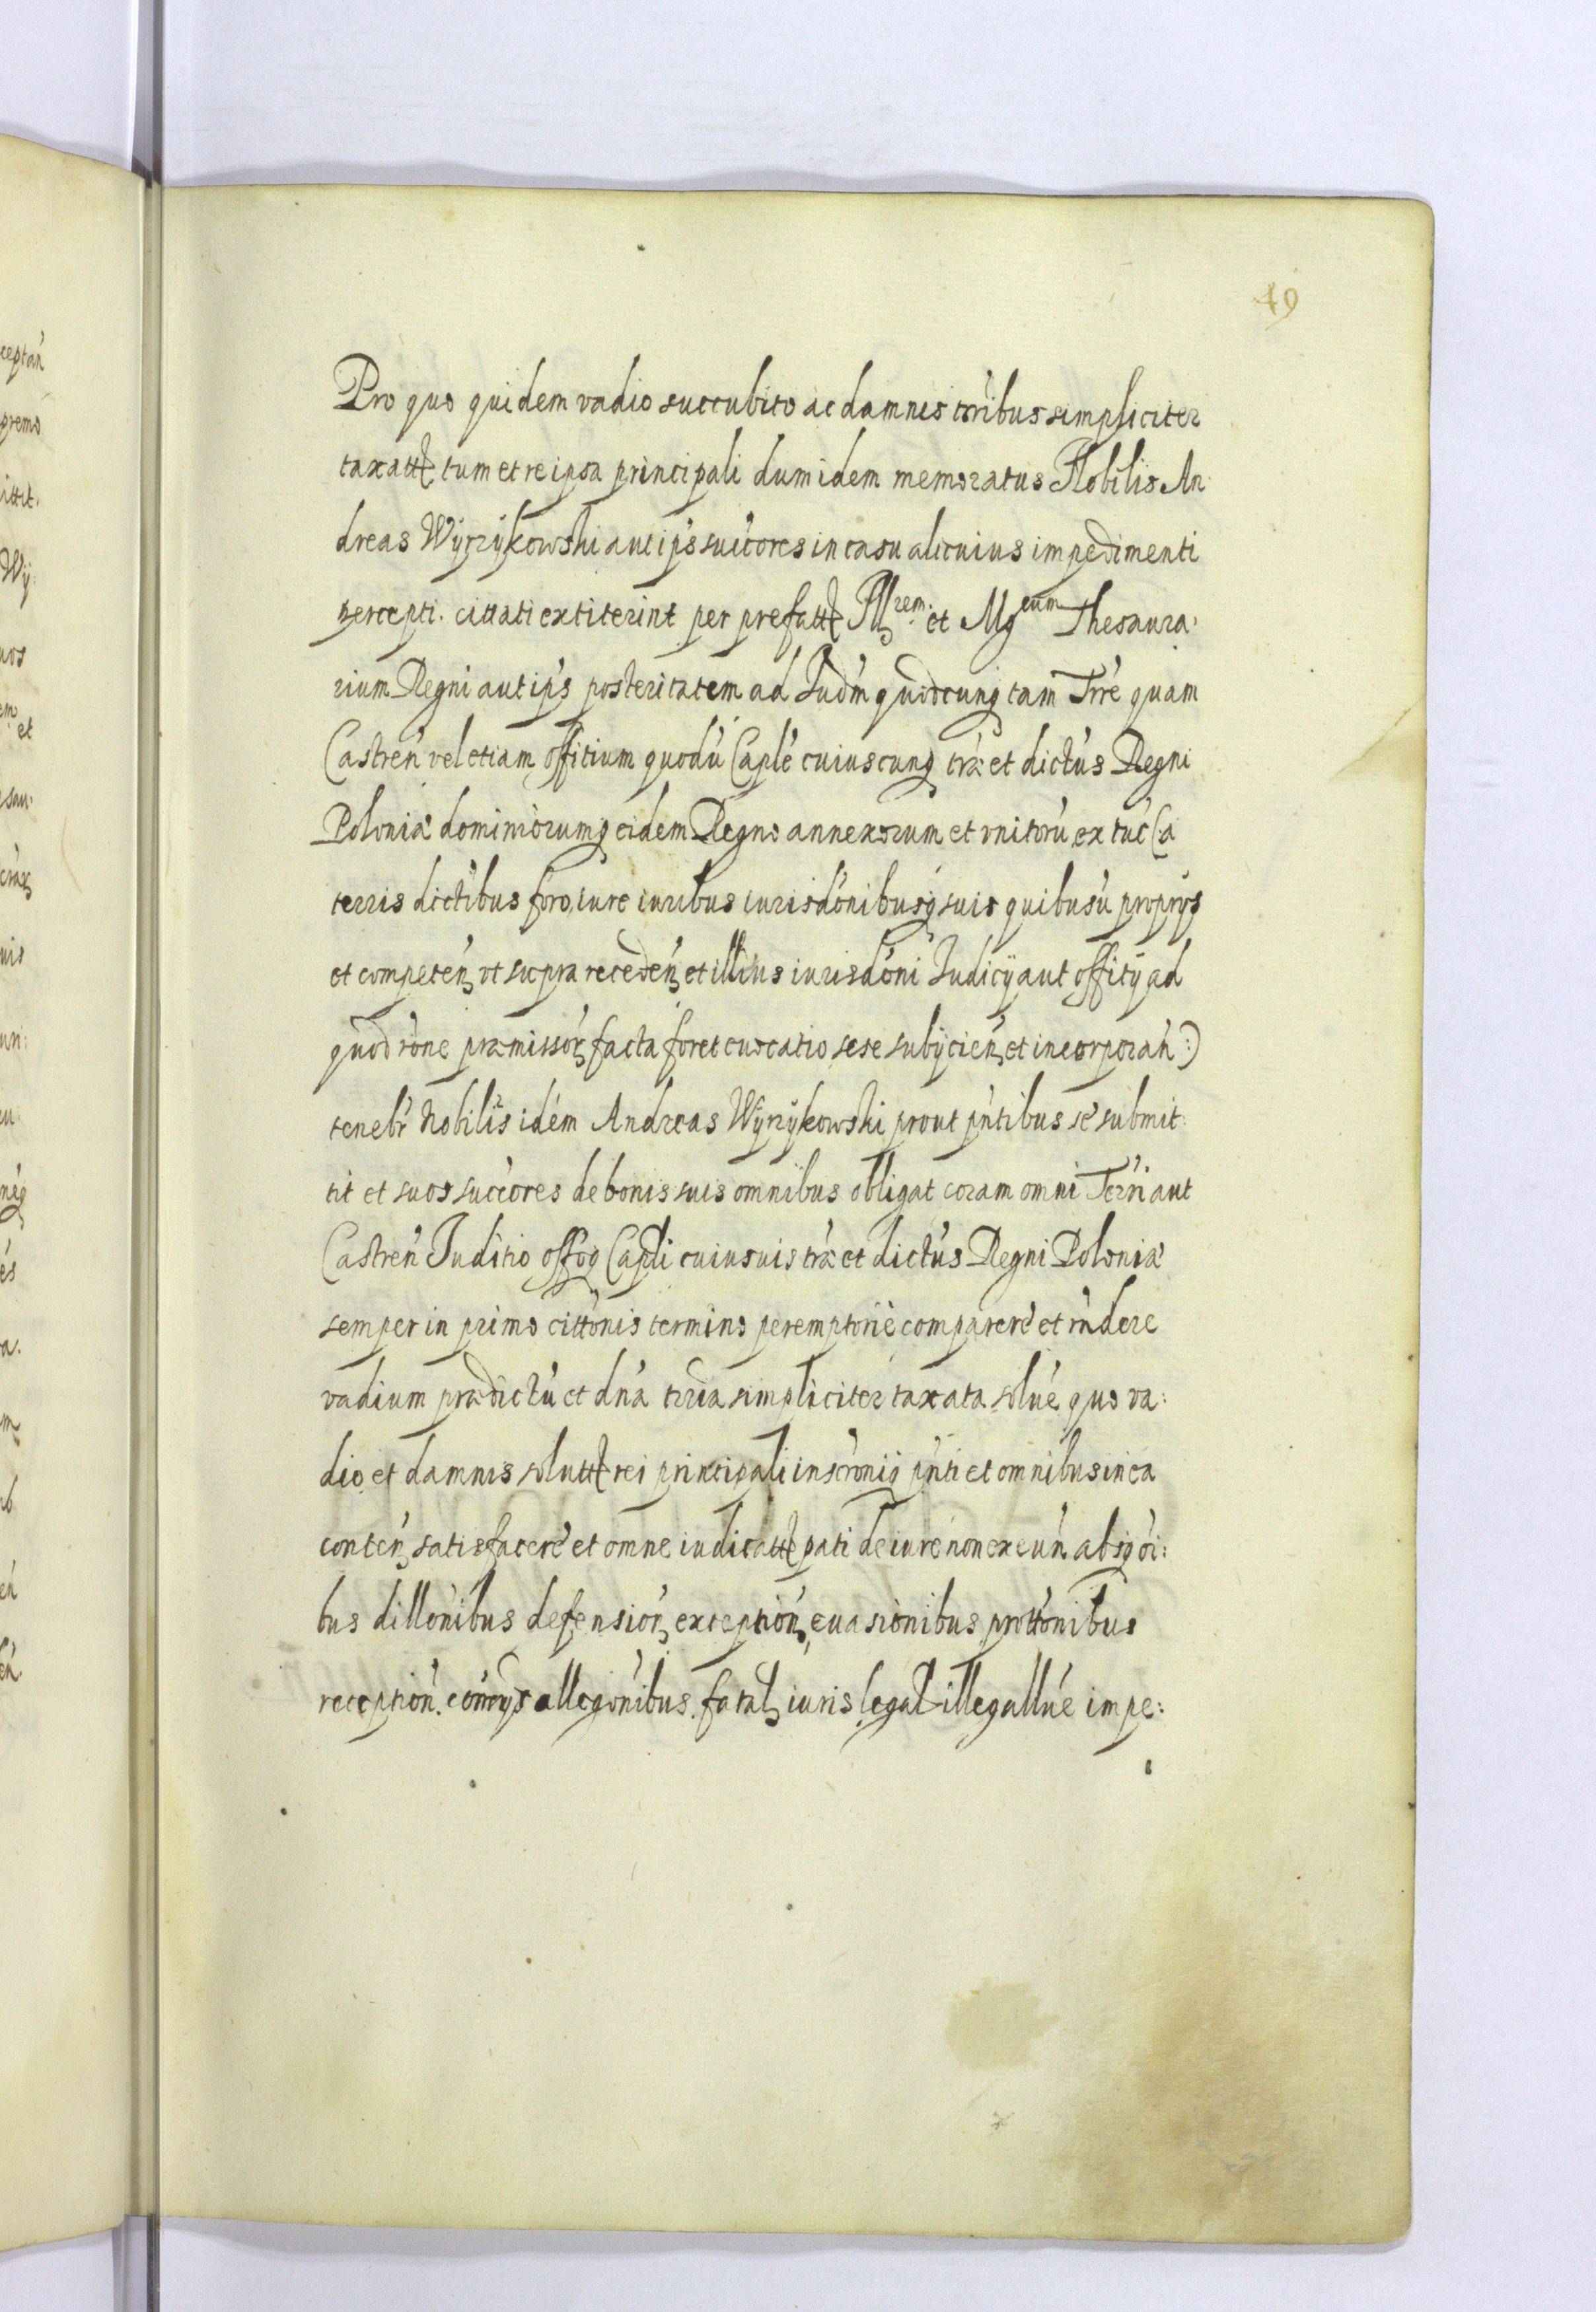 49
Pro quo quidem vadio succubito ac damnis trribus simpliciter
taxatt tum et re ipsa principali dum idem memoratus Nobilis An
dreas Wyrzykowski aut ips succores in casu alicuius impedimenti
percepti. cittati extiterint per prefatt Illrem et Mgcum Thesaura
rium Regni aut ips posteritatem ad Iudm quodcunq tam Trre quam
Castren vel etiam offitium quodu Caple cuiuscunq tra et dictus Regni
Polonia dominiorumq eidem Regno annexorum et vnitoru ex tuc (a
terris dictibus foro, iure iuribus iurisdonibusq suis quibusu proprys
et competen vt supra receden et illius iurisdoni Iudicÿ aut offitÿ ad
quod rone præmissor facta foret euocatio sese subÿcien et incorporan:)
tenebr Nobilis idem Andreas Wÿrzÿkowski prout pntibus se submit:
tit et suos succores de bonis suis omnibus obligat coram omni Terri aut
Castren Iuditio offoq Capli cuiusuis tra et dictus Regni Polonia
semper in primo cittonis termino peremptorie comparere et rndere
vadium prædictu et dna trria simpliciter taxata solue quo va:
dio et damnis solutt rei principali inscroniq pnti et omnibus in ea
conten satisfacere et omne iudicatt pati de iure non exeun absq oi:
bus dillonibus defension exception, euasionibus prottonibus
reception. allegonibus. fatal iuris legal illegallue impe: